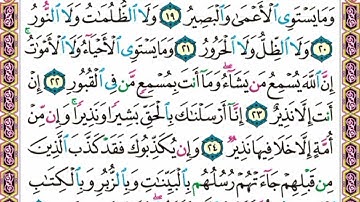 وَمَا يَسْتَوِى ٱلْأَعْمَىٰ وَٱلْبَصِيرُ ١٩ وَلَا ٱلظُّلُمَٰتُ وَلَا ٱلنُّورُ
٢٠ وَلَا ٱلظِّلُّ وَلَا ٱلْحَرُورُ ٢١ وَمَا يَسْتَوِى ٱلْأَحْيَآءُ وَلَا ٱلْأَمْوَٰتُ ۚ
إِنَّ ٱللَّهَ يُسْمِعُ مَن يَشَآءُ ۖ وَمَآ أَنتَ بِمُسْمِعٍ مَّن فِى ٱلْقُبُورِ ٢٢ إِنْ
أَنتَ إِلَّا نَذِيرٌ ٢٣ إِنَّآ أَرْسَلْنَٰكَ بِٱلْحَقِّ بَشِيرًا وَنَذِيرًا ۚ وَإِن مِّنْ
أُمَّةٍ إِلَّا خَلَا فِيهَا نَذِيرٌ ٢٤ وَإِن يُكَذِّبُوكَ فَقَدْ كَذَّبَ ٱلَّذِينَ
مِن قَبْلِهِمْ جَآءَتْهُمْ رُسُلُهُم بِٱلْبَيِّنَٰتِ وَبِٱلزُّبُرِ وَبِٱلْكِتَٰبِ